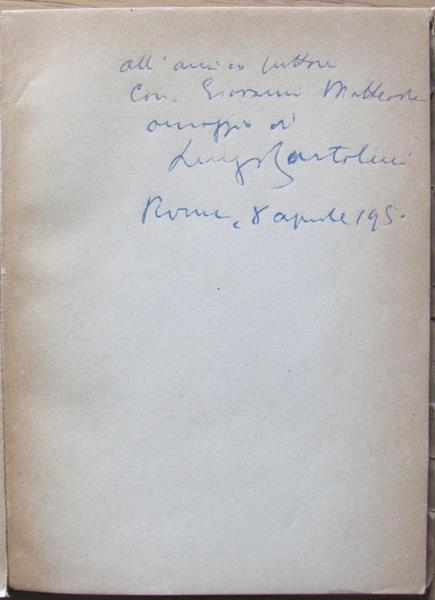 all'amico pittore
Con. Giovanni
omaggio di
Luigi Bartolini
Roma, 8 aprile 195.